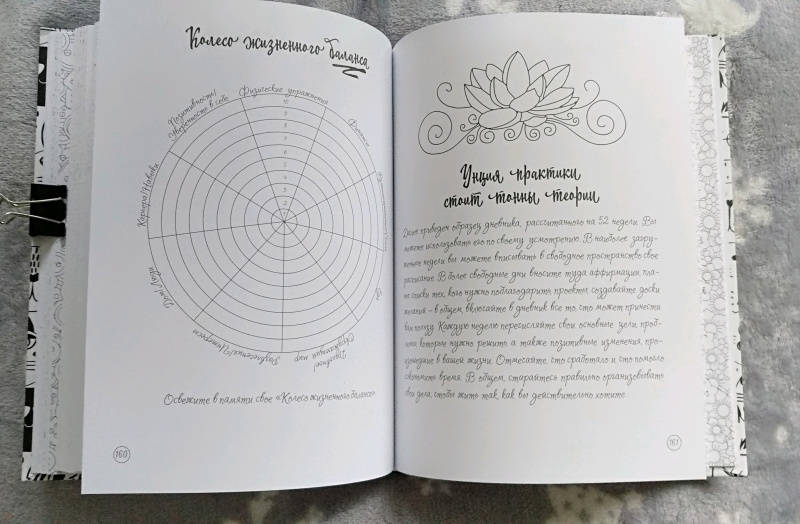 Колесо жизненного баланса
Физические упражнения
Позитивность/
Уверенность в себе
Карьера/Навыки
Развлечения/Интересы
Здоровье/
Окружающий мир
10
9
8
7
6
5
4
3
2
Освежите в памяти свое «Колесо жизненного баланса»
160
Унция практики
стоит тонны теории
Далее приведен образец дневника, рассчитанного на 52 недели. Вы
можете использовать его по своему усмотрению. В наиболее загру-
женные недели вы можете вписывать в свободное пространство свое
расписание. В более свободные дни вносите туда аффирмации, пла-
ны, списки тех, кого нужно поблагодарить, проекты, создавайте доски
желания – в общем, включайте в дневник все то, что может принести
вам пользу. Каждую неделю перечисляйте свои основные цели, проб-
лемы, которые нужно решить, а также позитивные изменения, про-
изошедшие в вашей жизни. Отмечайте, что сработало и что помогло
сэкономить время. В общем, старайтесь правильно организовывать
свои дела, чтобы жить так, как вы действительно хотите.
161